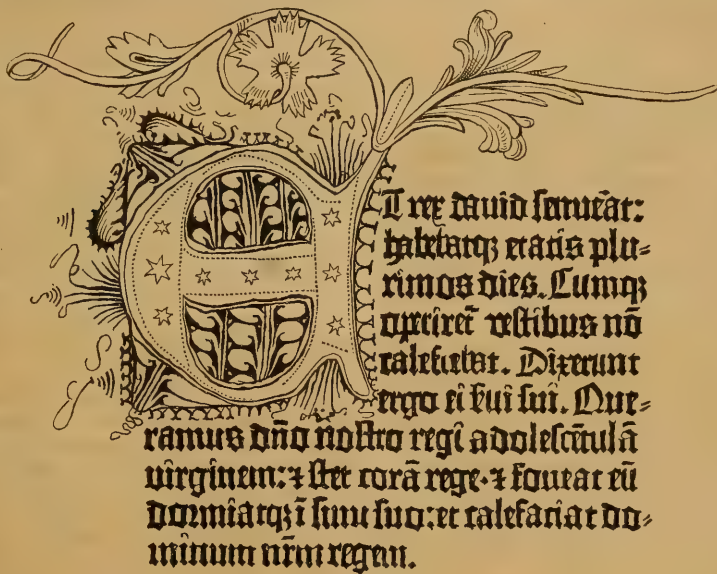 ET rex dauid senuerat:
habebatqꝫ etatis plu⸗
rimos dies. Cumqꝫ
operiret᷑ vestibus nō
calefiebat. Dixerunt
ergo ei ẜui sui. Que⸗
ramus dño nostro regi adolescētulā
uirginem: ⁊ stet corā rege· ⁊ foueat eū
dormiatqꝫ ī sinu suo: et calefaciat do⸗
minum nr̄m regem.